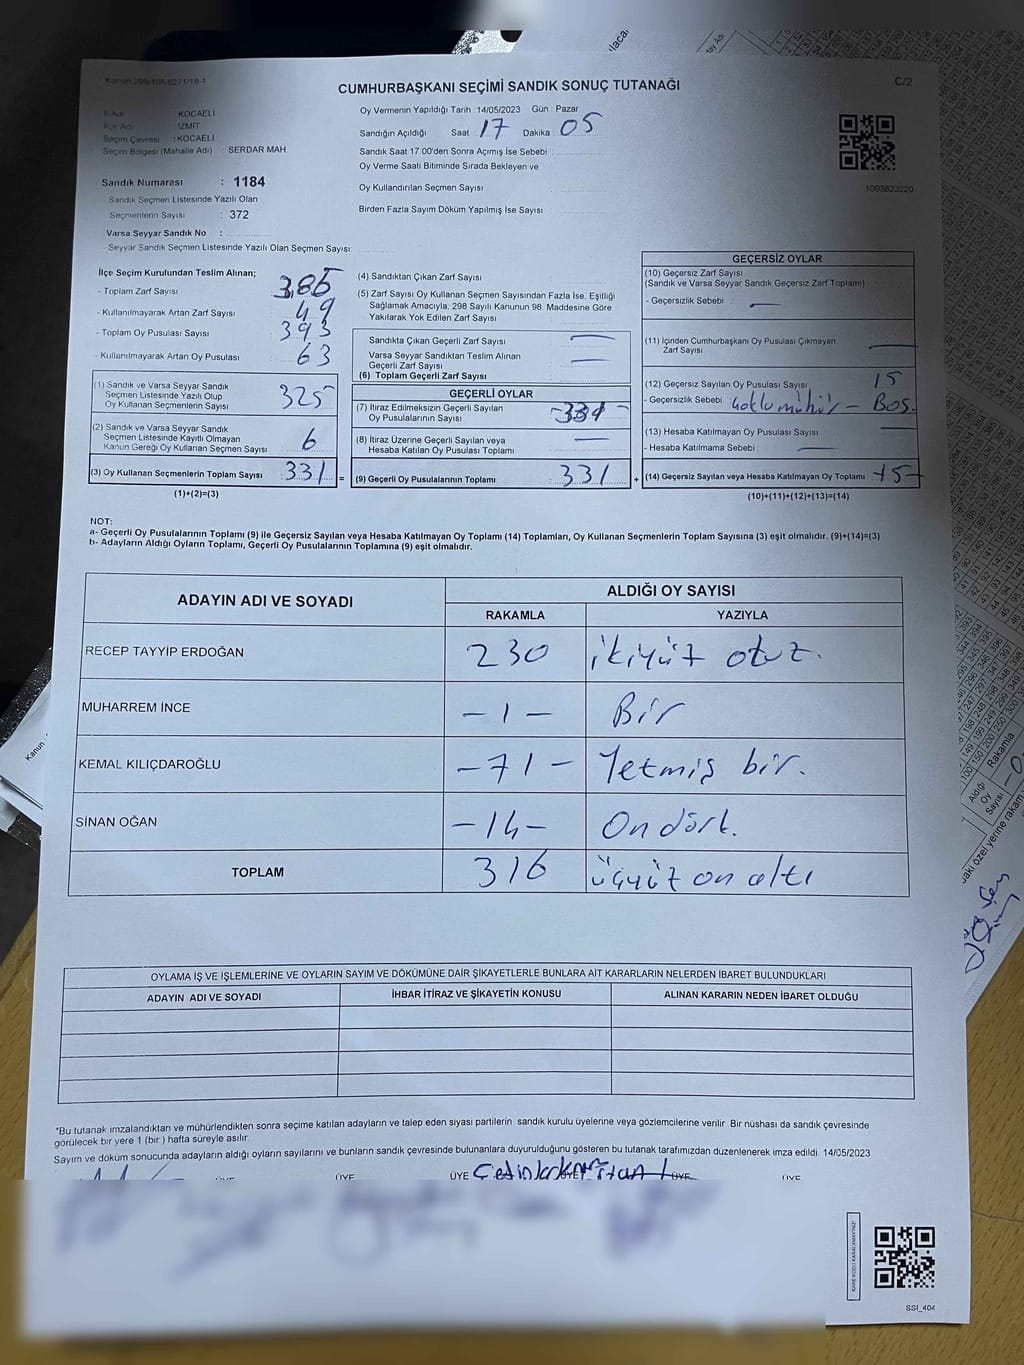 Kanun 298-108-6271/18-1
C/2
CUMHURBAŞKANI SEÇİMİ SANDIK SONUÇ TUTANAĞI
İl Adı : KOCAELİ
İlçe Adı : İZMİT
Seçim Çevresi : KOCAELİ
Seçim Bölgesi (Mahalle Adı) SERDAR MAH.
Sandık Numarası : 1184
Sandık Seçmen Listesinde Yazılı Olan
Seçmenlerin Sayısı : 372
Varsa Seyyar Sandık No :
- Seyyar Sandık Seçmen Listesinde Yazılı Olan Seçmen Sayısı
Oy Vermenin Yapıldığı Tarih : 14/05/2023 Gün : Pazar
Sandığın Açıldığı Saat 17 Dakika : 05
Sandık Saat 17:00'den Sonra Açımış İse Sebebi :
Oy Verme Saati Bitiminde Sırada Bekleyen ve
Oy Kullandırılan Seçmen Sayısı
Birden Fazla Sayım Döküm Yapılmış İse Sayısı
1093823220
İlçe Seçim Kurulundan Teslim Alınan;
- Toplam Zarf Sayısı 385
- Kullanılmayarak Artan Zarf Sayısı 49
- Toplam Oy Pusulası Sayısı 393
- Kullanılmayarak Artan Oy Pusulası 63
(1) Sandık ve Varsa Seyyar Sandık
Seçmen Listesinde Yazılı Olup
Oy Kullanan Seçmenlerin Sayısı 325
(2) Sandık ve Varsa Seyyar Sandık
Seçmen Listesinde Kayıtlı Olmayan
Kanun Gereği Oy Kullanan Seçmen Sayısı 6
(3) Oy Kullanan Seçmenlerin Toplam Sayısı : 331 =
(1)+(2)=(3)
(4) Sandıktan Çıkan Zarf Sayısı
(5) Zarf Sayısı Oy Kullanan Seçmen Sayısından Fazla İse, Eşitliği
Sağlamak Amacıyla, 298 Sayılı Kanunun 98. Maddesine Göre
Yakılarak Yok Edilen Zarf Sayısı
Sandıkta Çıkan Geçerli Zarf Sayısı
Varsa Seyyar Sandıktan Teslim Alınan
Geçerli Zarf Sayısı
(6) Toplam Geçerli Zarf Sayısı
GEÇERLİ OYLAR
(7) İtiraz Edilmeksizin Geçerli Sayılan
Oy Pusulalarının Sayısı
(8) İtiraz Üzerine Geçerli Sayılan veya
Hesaba Katılan Oy Pusulası Toplamı
(9) Geçerli Oy Pusulalarının Toplamı : 331 +
GEÇERSİZ OYLAR
(10) Geçersiz Zarf Sayısı
(Sandık ve Varsa Seyyar Sandık Geçersiz Zarf Toplamı)
- Geçersizlik Sebebi : —
(11) İçinden Cumhurbaşkanı Oy Pusulası Çıkmayan
Zarf Sayısı
(12) Geçersiz Sayılan Oy Pusulası Sayısı 15
- Geçersizlik Sebebi mühür – Boş.
(13) Hesaba Katılmayan Oy Pusulası Sayısı
- Hesaba Katılmama Sebebi : —
(14) Geçersiz Sayılan veya Hesaba Katılmayan Oy Toplamı 15
(10)+(11)+(12)+(13)=(14)
NOT:
a- Geçerli Oy Pusulalarının Toplamı (9) ile Geçersiz Sayılan veya Hesaba Katılmayan Oy Toplamı (14) Toplamları, Oy Kullanan Seçmenlerin Toplam Sayısına (3) eşit olmalıdır. (9)+(14)=(3)
b- Adayların Aldığı Oyların Toplamı, Geçerli Oy Pusulalarının Toplamına (9) eşit olmalıdır.
ADAYIN ADI VE SOYADI ALDIĞI OY SAYISI
RAKAMLA YAZIYLA
RECEP TAYYİP ERDOĞAN 230 ikiyüz otuz.
MUHARREM İNCE -1- Bir
KEMAL KILIÇDAROĞLU -71- Yetmiş bir.
SİNAN OĞAN -14- On dört.
TOPLAM 316 üçyüz on altı
OYLAMA İŞ VE İŞLEMLERİNE VE OYLARIN SAYIM VE DÖKÜMÜNE DAİR ŞİKAYETLERLE BUNLARA AİT KARARLARIN NELERDEN İBARET BULUNDUKLARI
ADAYIN ADI VE SOYADI İHBAR İTİRAZ VE ŞİKAYETİN KONUSU ALINAN KARARIN NEDEN İBARET OLDUĞU
*Bu tutanak imzalandıktan ve mühürlendikten sonra seçime katılan adayların ve talep eden siyasi partilerin sandık kurulu üyelerine veya gözlemcilerine verilir. Bir nüshası da sandık çevresinde
görülecek bir yere 1 (bir) hafta süreyle asılır.
Sayım ve döküm sonucunda adayların aldığı oyların sayılarını ve bunların sandık çevresinde bulunanlara duyurulduğunu gösteren bu tutanak tarafımızdan düzenlenerek imza edildi. 14/05/2023
ÜYE ÜYE ÜYE ÜYE ÜYE ÜYE
SSI_404